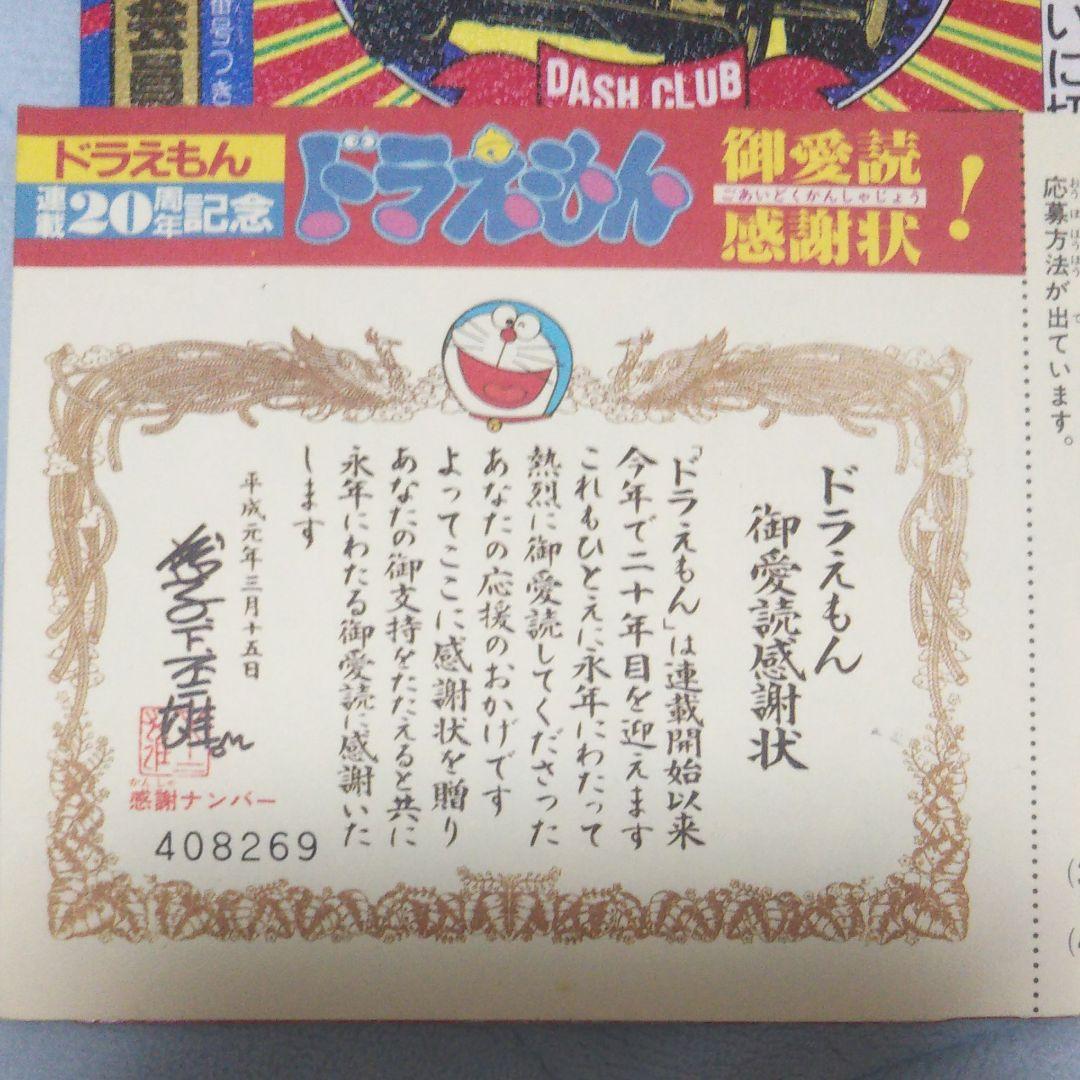 番号つき
会員
DASH CLUB
ドラえもん
連載20周年記念
ドラえもん
御愛読
ごあいどくかんしゃじょう
感謝状
!
ドラえもん
御愛読感謝状
『ドラえもん』は連載開始以来
今年で二十年目を迎えます
これもひとえに永年にわたって
熱烈に御愛読してくださった
あなたの応援のおかげです
よってここに感謝状を贈り
あなたの御支持をたたえると共に
永年にわたる御愛読に感謝いた
します
平成元年三月十五日
かんしゃ
感謝ナンバー
408269
おうぼほうほう で
応募方法が出ています。